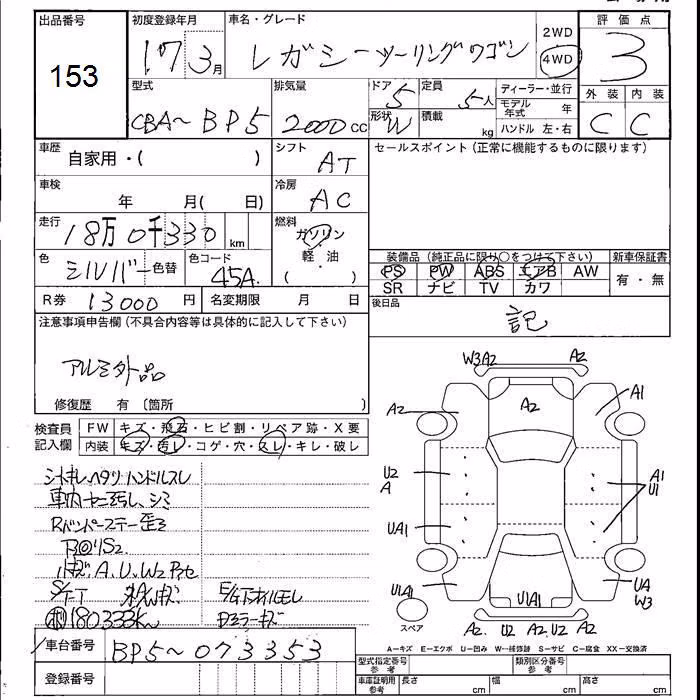 出品番号
153
初度登録年月
17 3月
車名・グレード
レガシーツーリングワゴン
2WD
4WD
評価点
3
外装 内装
C C
型式
CBA~BP5
排気量
2000cc
ドア 5
形状 W
定員 5人
積載 kg
ディーラー・並行
モデル年式 年
ハンドル 左・右
車歴
自家用・( )
シフト
AT
セールスポイント(正常に機能するものに限ります)
車検
年 月( 日)
冷房
AC
走行
18万0千330km
燃料
ガソリン
軽・油
( )
色
シルバー 色替
色コード
45A
装備品(純正品に限り○をつけて下さい)
PS PW ABS エアB AW
SR ナビ TV カワ
新車保証書
有・無
R券 13000円
名変期限 月 日
後日品
記
注意事項申告欄(不具合内容等は具体的に記入して下さい)
アルミ外品
修復歴 有 〔箇所 〕
検査員記入欄
FW キズ・飛石・ヒビ割・リペア跡・X要
内装 キズ・汚レ・コゲ・穴・スレ・キレ・破レ
シートキレ、ヘタリ ハンドルスレ
車内 汚し、シミ
Rバンパーステー歪ミ
小キズ、A、U、W2
180333Km
ドアミラーキズ
車台番号 BP5~073353
登録番号
W3 A2 A2
A2 A2 A1
U2
A
A1
U1
UA1
U1A1 U1A1 UA
W3
スペア
A2 U2 A2, U2 A2
A-キズ E-エクボ U-凹み W-補修跡 S-サビ C-腐食 XX-交換済
型式指定番号 参考
類別区分番号 参考
車庫証明用 参考
長さ cm 幅 cm 高さ cm